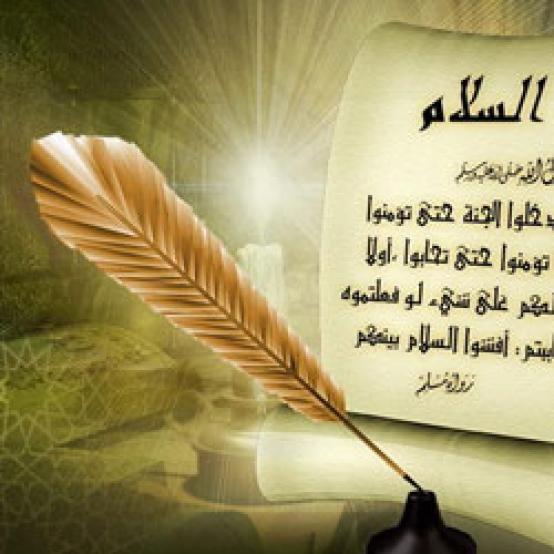 السلام
صلى الله عليه وسلم
الجنة حتى تؤمنوا
تؤمنوا حتى تحابوا ,أولا
على شيء لو فعلتموه
: أفشوا السلام بينكم
رواه مسلم